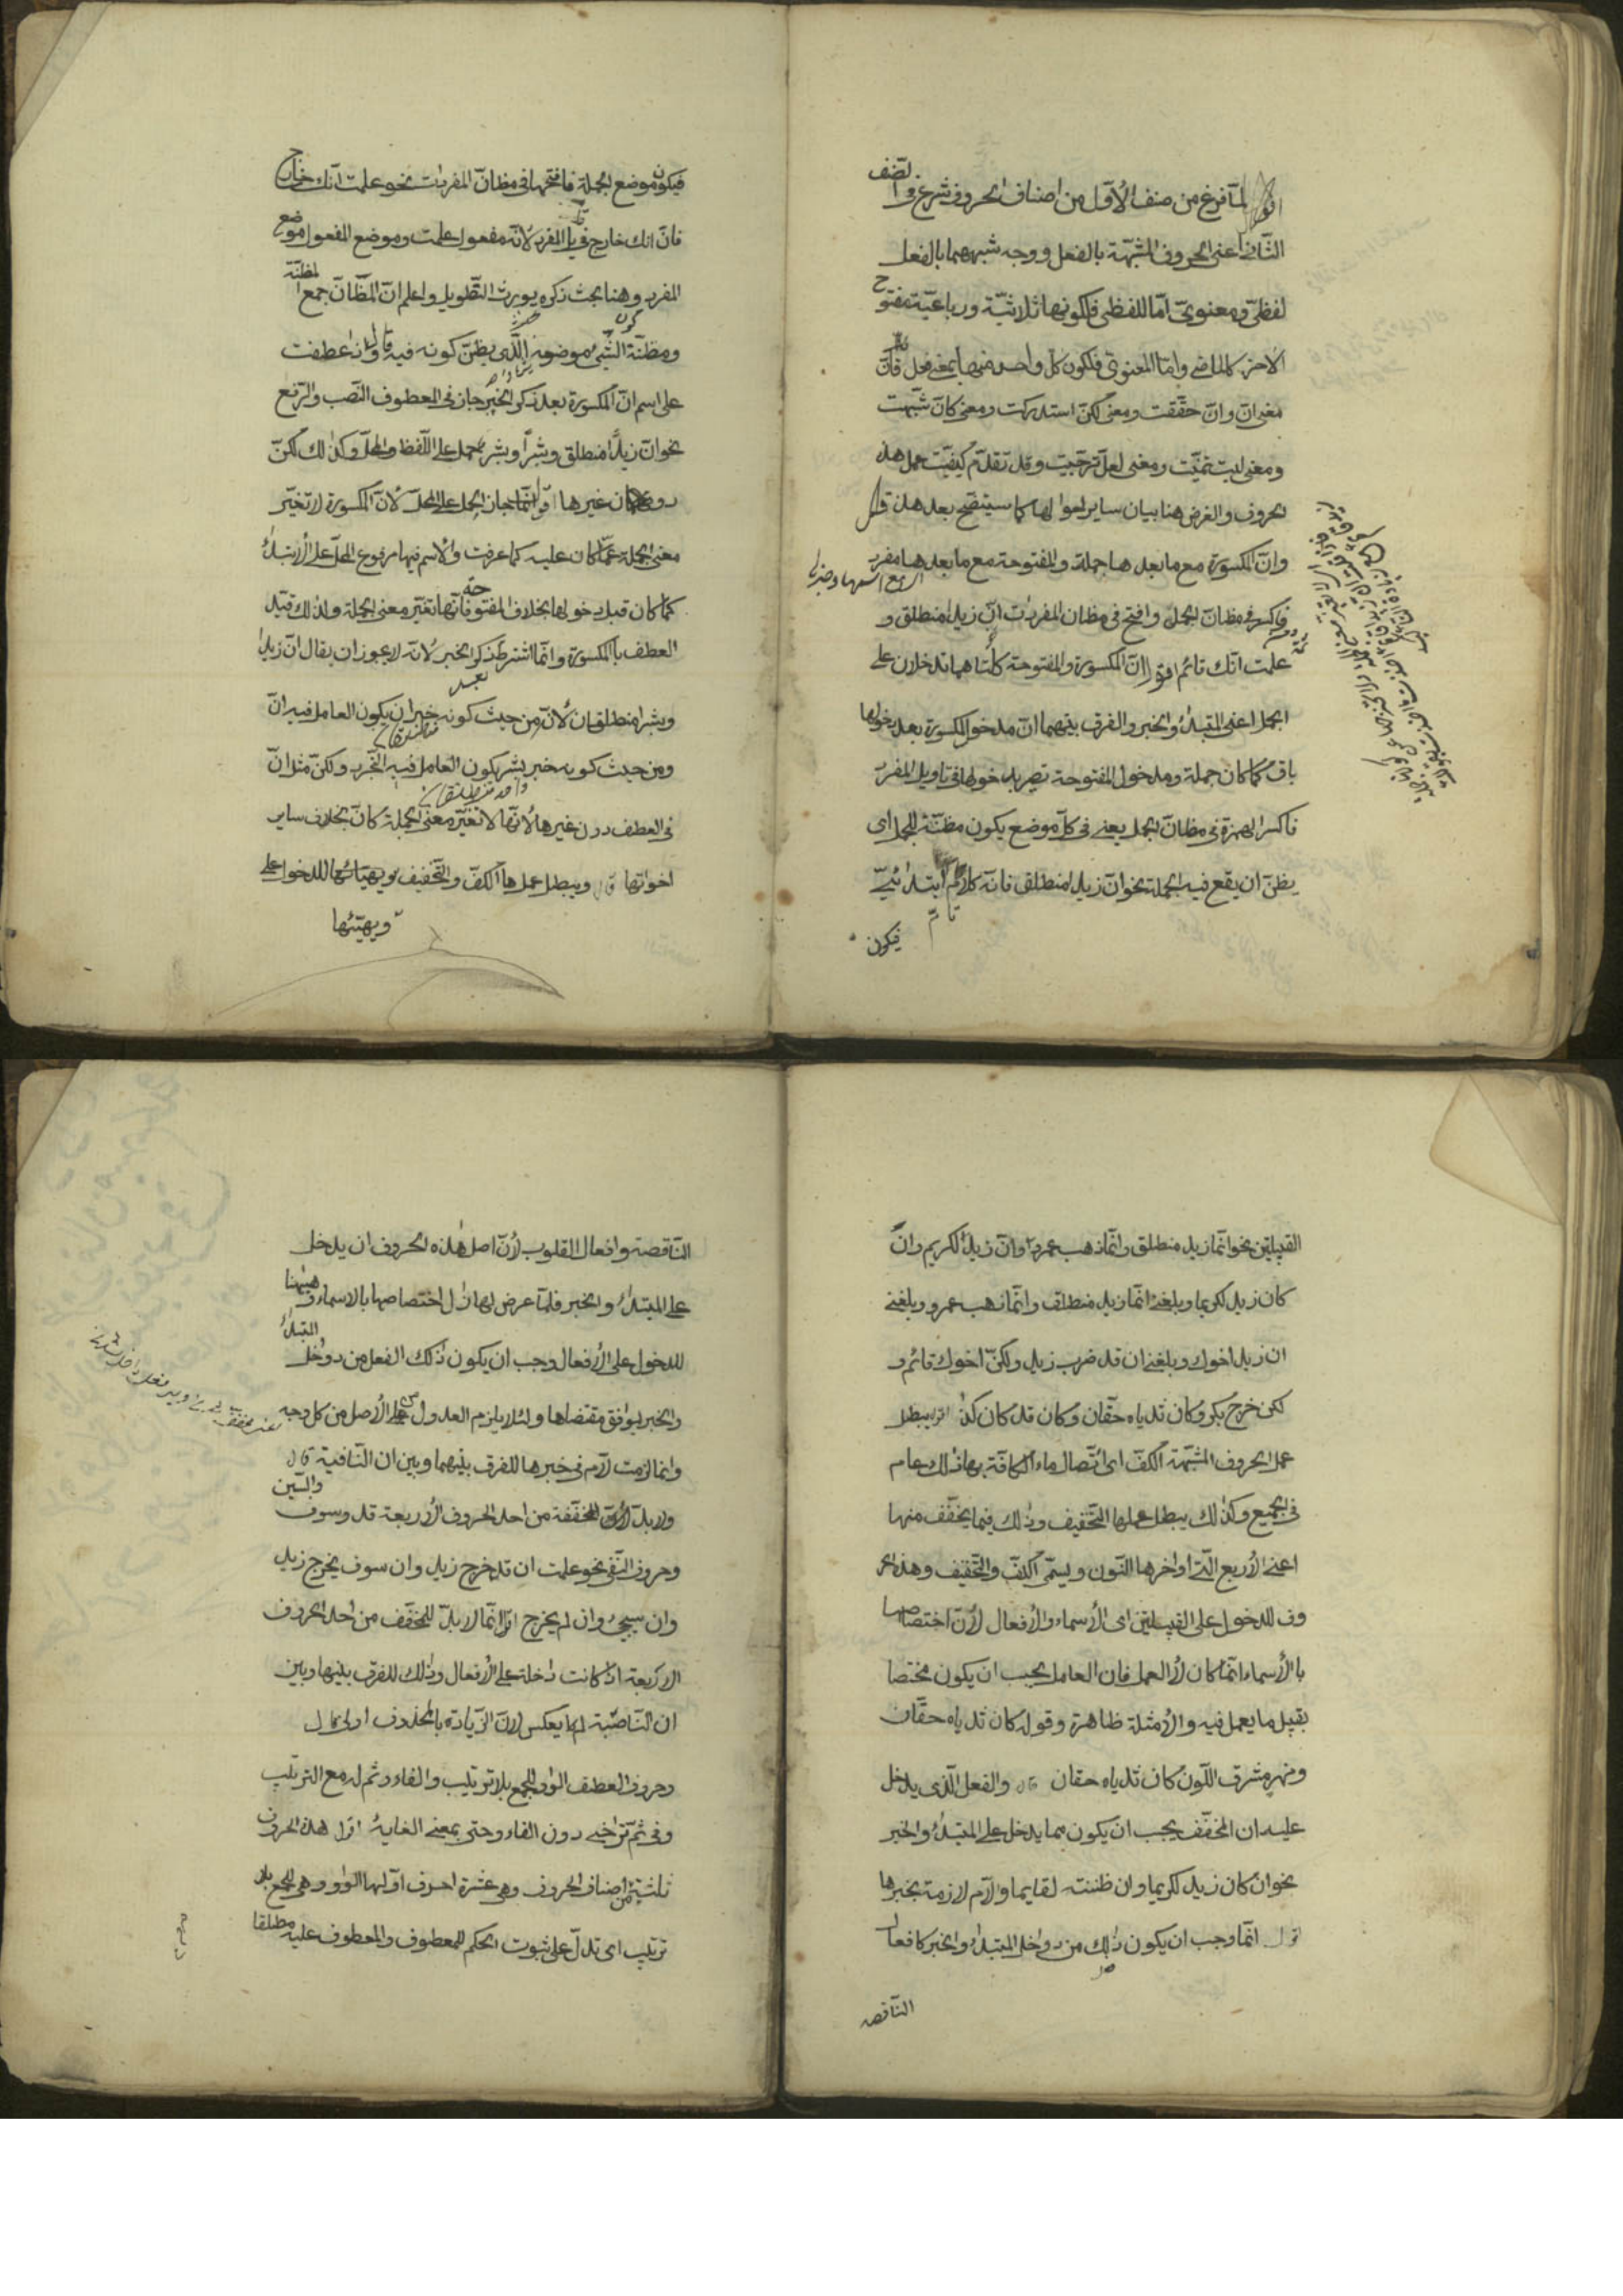 اقول لمّا فرغ من صنف الأوّل من اصناف الحروف شرع فى الصّنف
الثّانى اعنى الحروف المشبّهة بالفعل ووجه شبهها بالفعل
لفظىّ ومعنوىّ امّا اللفظى فلكونها ثلاثيّة ورباعيّة مفتوح
الأخر كالماضى وامّا المعنوى فلكون كلّ واحد منها بمعنى فعل فانّ
معنى انّ وانّ حقّقت ومعنى لكنّ استدركت ومعنى كانّ شبّهت
ومعنى ليت تمنّيت ومعنى لعلّ ترجّيت وقد تقدّم كيفيّت عمل هذه
الحروف والغرض هنا بيان ساير احوالها كما سيتضح بعد هذا قال
وانّ المكسورة مع ما بعدها جملة والمفتوحة مع ما بعدها مفرد
اى مع اسمها وخبرها
فاكسر فى مظانّ الجمل وافتح فى مظان المفردات انّ زيدا منطلق و
علمت انّك قائم اقول انّ المكسورة والمفتوحة كلتاهما تدخلان على
الجمل اعنى المبتدأ والخبر والفرق بينهما انّ مدخول المكسورة بعد دخولها
باق كما كان جملة ومدخول المفتوحة تصير بدخولها فى تاويل المفرد
فاكسر الهمزة فى مظانّ الجمل يعنى فى كلّ موضع يكون مظنّة للجمل اى
يظنّ ان يقع فيه الجملة نحو انّ زيدا منطلق فانّه كلام ابتدائىّ
تامّ
فيكون
فيكون موضع الجملة فافتحها فى مظانّ المفردات نحو علمت انّك خارج
فانّ انك خارج فى المفرد لانّه مفعول علمت وموضع المفعول موضع
المفرد وهنا بحث ذكره يورث التّطويل واعلم انّ المظّانّ جمع المظنّة
ومظنّة الشّىء موضعه الّذى يظنّ كونه فيه قال وان عطفت
على اسم انّ المكسورة بعد ذكر الخبر جاز فى المعطوف النّصب والرّفع
نحو انّ زيدًا منطلق وبشرًا وبشر بحمل على اللّفظ والمحلّ وكذلك لكنّ
دون غيرها اقول انّما جاز الحمل على المحلّ لأنّ المكسورة لا تغيّر
معنى الجملة عمّا كان عليه كما عرفت والاسم فيها مرفوع المحلّ على الأبتداء
كما كان قبل دخولها بخلاف المفتوحة فانّها تغيّر معنى الجملة ولذلك قيّد
العطف بالمكسورة وانّما اشترط ذكر الخبر لأنّه لا يجوز ان يقال انّ زيدا
وبشرا منطلقان لأنّ من حيث كونه خبر ان يكون العامل فيه انّ
ومن حيث كونه خبر بشر يكون العامل فيه التّجرد ولكنّ مثل انّ
فى العطف دون غيرها لأنّها لا تغيّر معنى الجملة كانّ بخلاف ساير
اخواتها قال ويبطل عملها الكفّ والتّخفيف ويهيّئها للدخول على
ويهيّئها
القبيلين نحو انّما زيد منطلق وانّما ذهب عمرو وان زيد الكريم وان
كان زيد لكريما وبلغنى انّما زيد منطلق وانّما ذهب عمرو وبلغنى
ان زيد اخوك وبلغنى ان قد ضرب زيد ولكن اخوك قائم و
لكن خرج بكر وكان ثدياه حقّان وكان قد كان كذا اقول يبطل
عمل الحروف المشبّهة الكفّ اى اتّصال ماء الكافّة بها ذلك عام
فى الجميع وكذلك يبطل عملها التّخفيف وذلك فيما يخفّف منها
اعنى الأربع الّتى اواخرها النّون ويسمّى الكفّ والتّخفيف وهذه الحر
وف للدخول على القبيلتين اى الأسماء والأفعال لأنّ اختصاصها
بالأسماء انّما كان لأ العمل فان العامل يجب ان يكون مختصا
بقبيل ما يعمل فيه والأمثلة ظاهرة وقوله كان ثدياه حقّان
ونهر مشرق اللّون كان ثدياه حقان قال والفعل الّذى يدخل
عليه ان المخفّف يجب ان يكون مما يدخل على المبتدأ والخبر
نحو ان كان زيد لكريما وان ظننته لقايما والاّم لازمة بخبرها
اقول انّما وجب ان يكون ذلك من دواخل المبتدأ والخبر كافعال
النّاقصه
النّاقصة وافعال القلوب لأنّ اصل هذه الحروف ان يدخل
على المبتدأ والخبر فلمّا عرض لها زال اختصاصها بالاسماء وهيّئها
للدخول على الأفعال وجب ان يكون ذلك الفعل من دواخل المبتدأ
والخبر ليوافق مقتضاها ولئلا يلزم العدول عن الأصل من كل وجه
وانما لزمت لام فى خبرها للفرق بينهما وبين ان النّافية قال
ولا بدّ لأن المخفّفة من احد الحروف الأربعة قد وسوف والسّين
وحروف النّفى نحو علمت ان قد خرج زيد وان سوف يخرج زيد
وان سيجىء وان لم يخرج اقول انّما لا بدّ للمخفّف من احد الحروف
الاربعة اذا كانت داخلة على الأفعال وذلك للفرق بينها وبين
ان النّاصبة انما يعكس لانّ الزّيادة بالمحذوف اولى قال
وحروف العطف الواو للجمع بلا ترتيب والفاء وثم له مع الترتيب
وفى ثمّ تراخى دون الفاء وحتّى بمعنى الغاية اقول هذه الحروف
ثلثيّة من اصناف الحروف وهى عشرة احرف اوّلها الواو وهى للجمع بلا
ترتيب اى تدلّ على ثبوت الحكم للمعطوف والمعطوف عليه مطلقا